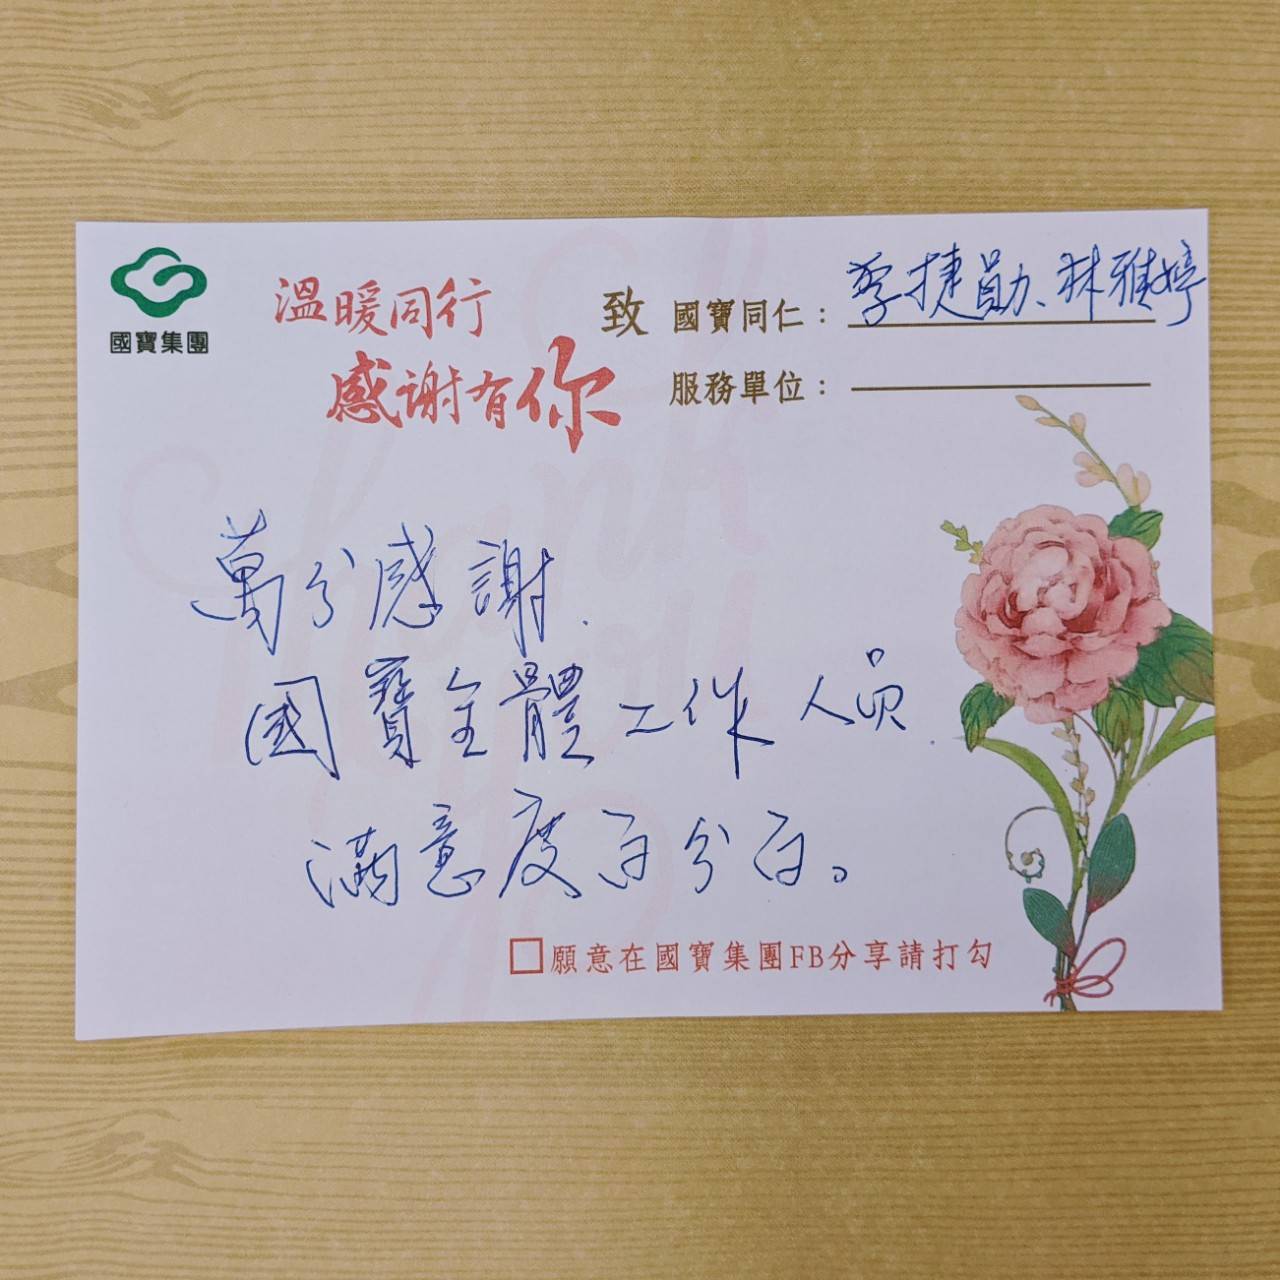 國寶集團
溫暖同行
感謝有你
致 國寶同仁：李捷勛、林雅婷
服務單位：
萬分感謝.
國寶全體工作人員.
滿意度百分百。
□願意在國寶集團FB分享請打勾